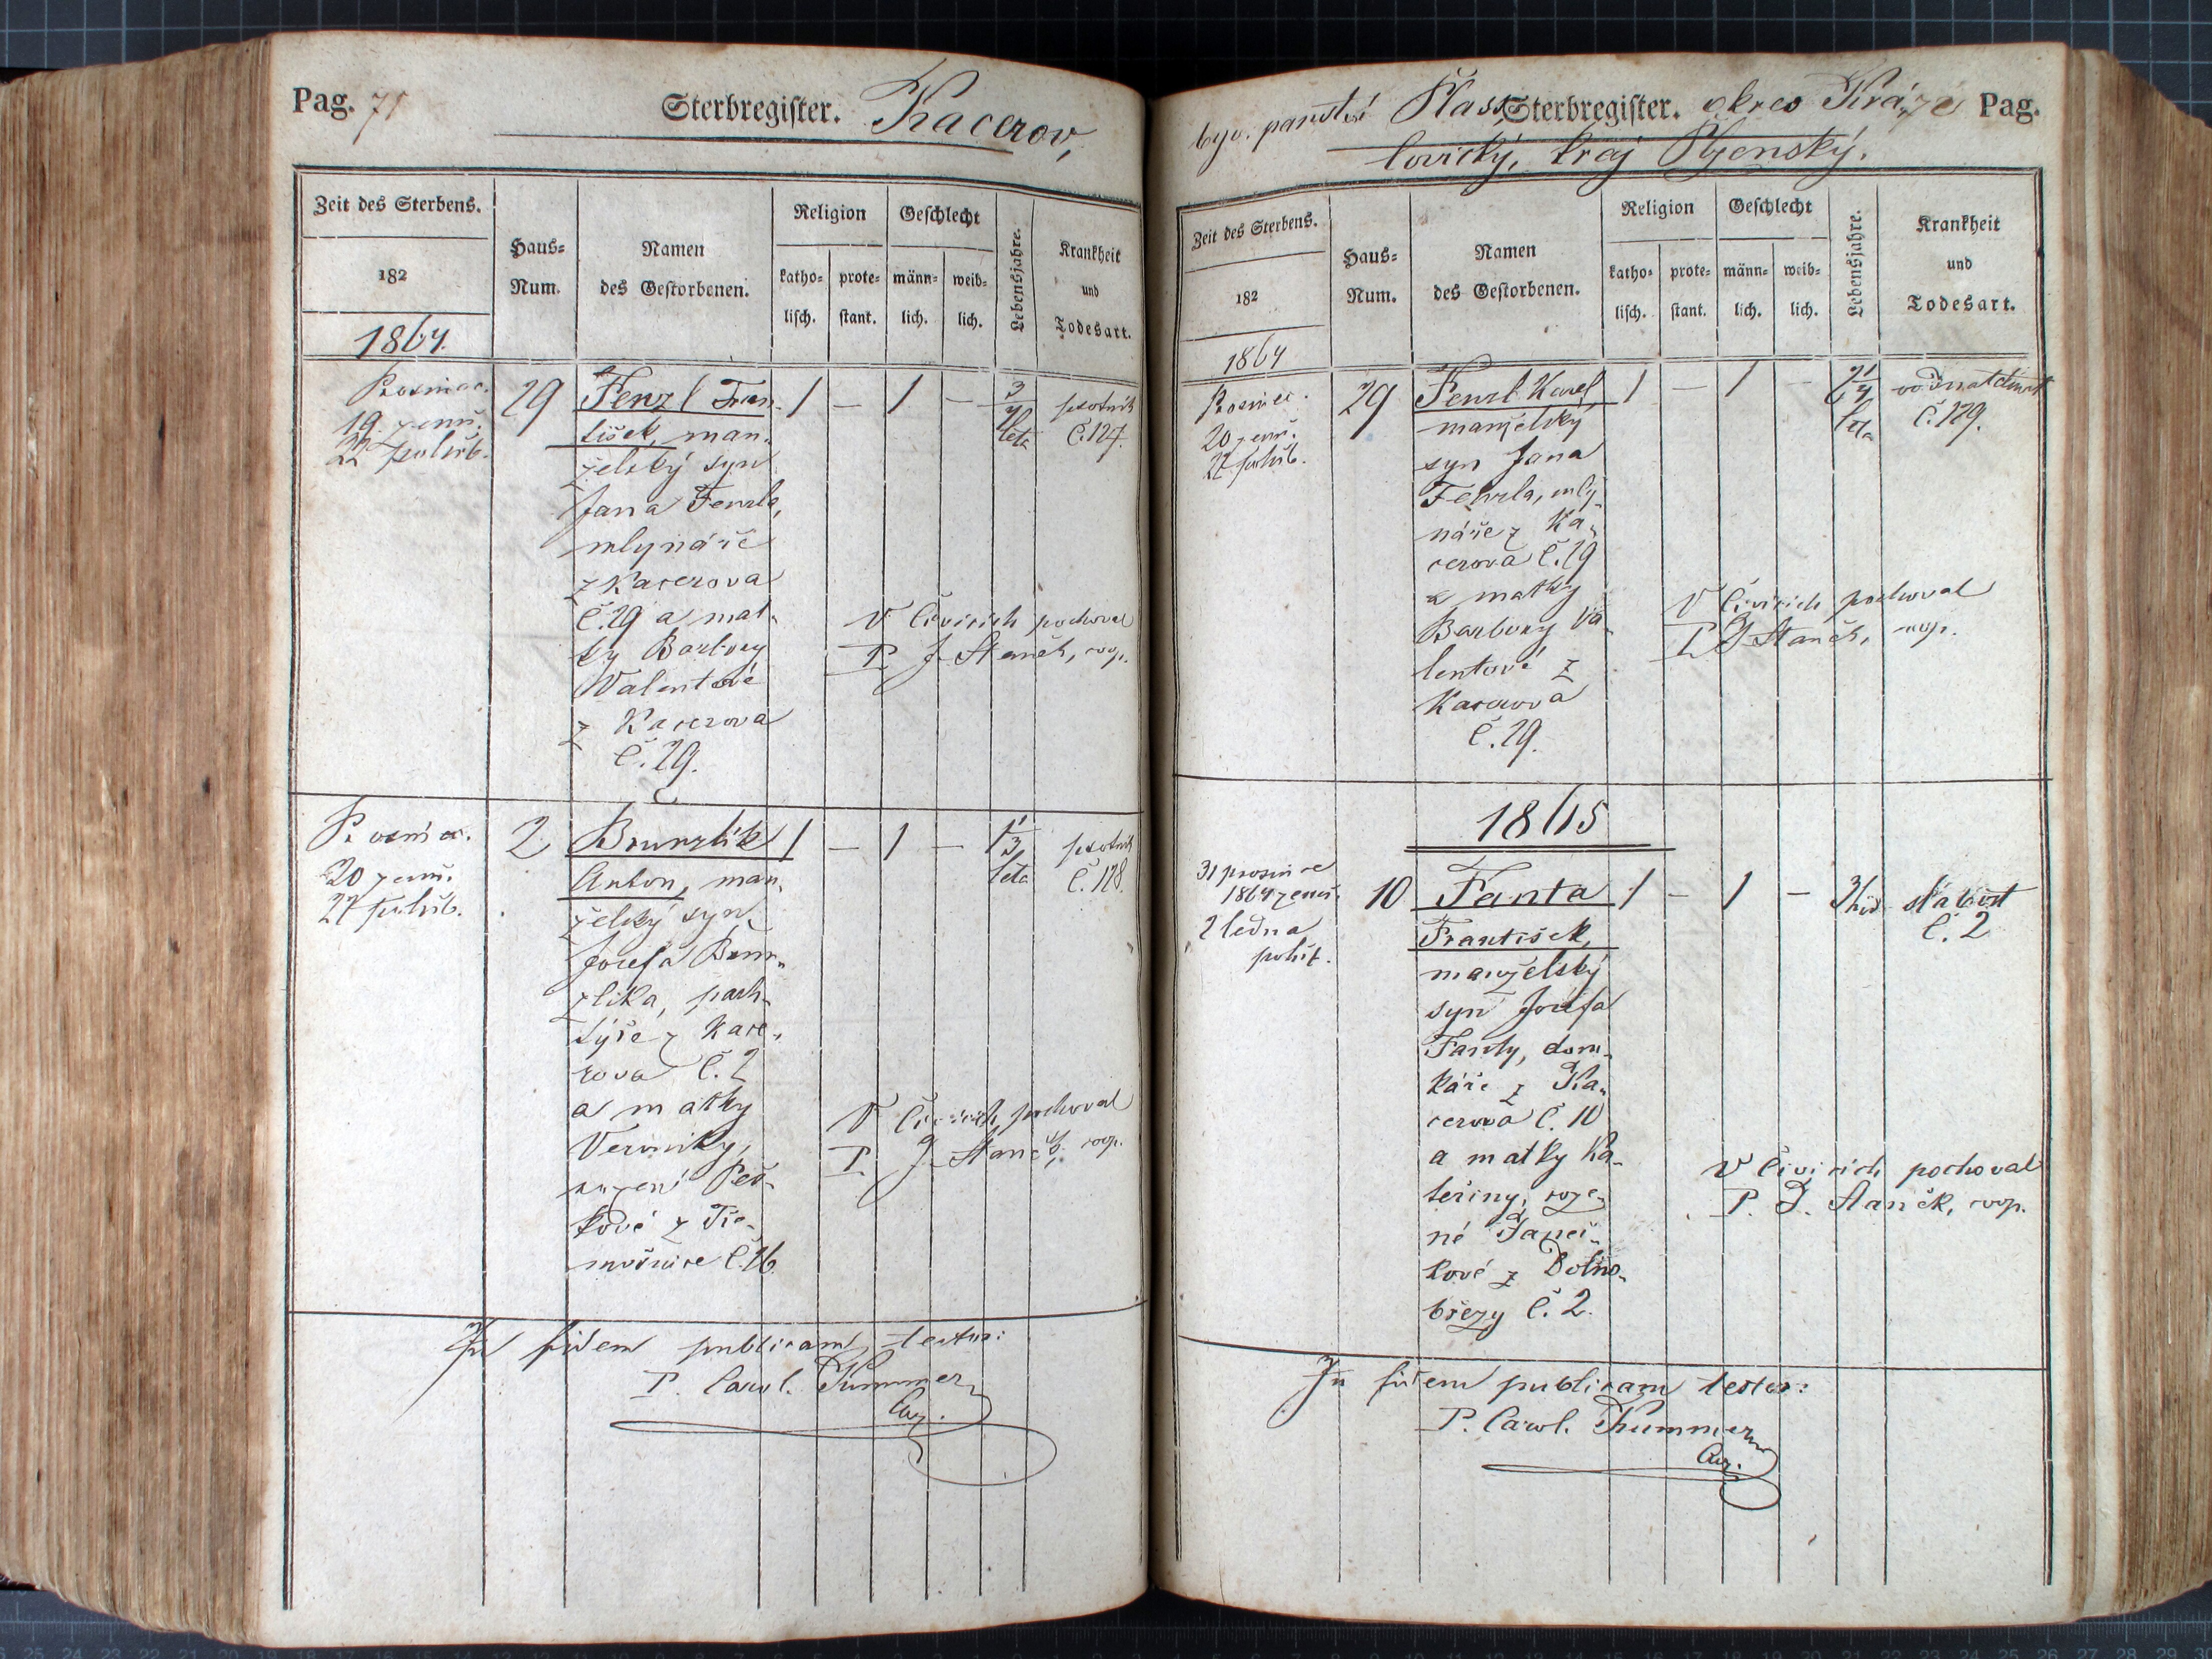 Pag. 71
Sterbregister. Kacerov,
Zeit des Sterbens.
182
1864.
Haus-
Num.
Namen
des Gestorbenen.
Religion
katho-
lisch.
prote-
stant.
Geschlecht
männ-
lich.
weib-
lich.
Lebensjahre.
Krankheit
und
Todesart.
19. zemř.
22 pohřb.
29
Fenzl Fran-
tišek, man-
želský syn
Jana Fenzla,
mlynáře
z Kacerova
Č. 29 a mat-
ky Barbory
Walentové
z Kacerova
Č. 29.
1 — 1 —
3/4
leta
psotník
Č. 127.
V Čivicích pochoval
P. J. Staněk, mp.
20 zemř.
27 pohřb.
2
Brunzlík
Anton, man-
želský syn
Josefa Brun-
zlíka, pach-
týře z Kace-
rova Č. 2
a matky
Veroniky,
rození Peš-
kové z Tře-
mošnice Č. 16
1 — 1 —
1/3
leta
psotník
Č. 128.
V Čivicích pochoval
P. J. Staněk, mp.
In fidem publicam testor:
P. Carol. Kummer
Cur.
byv. panství Plass Sterbregister. okres Kra- 72 Pag.
lovický, kraj Plzenský.
Zeit des Sterbens.
182
1864
Haus-
Num.
Namen
des Gestorbenen.
Religion
katho-
lisch.
prote-
stant.
Geschlecht
männ-
lich.
weib-
lich.
Lebensjahre.
Krankheit
und
Todesart.
Prosinec.
20 zemř.
27 pohřb.
29
Fenzl Karel,
manželský
syn Jana
Fenzla, mly-
náře z Ka-
cerova Č. 29
a matky
Barbory Va-
lentové z
Kacerova
Č. 29.
1 — 1 —
leta
Č. 129.
V Čivicích pochoval
P. J. Staněk, mp.
1865
31 prosince
1864 zemř.
2 ledna
pohř.
10
Fanta
František,
manželský
syn Josefa
Fanty, dom-
káře z Ka-
cerova Č. 10
a matky Ka-
teřiny, roze-
né Janeč-
kové z Dolno-
březy Č. 2.
1 — 1 —
slabost
Č. 2
V Čivicích pochoval
P. J. Staněk, mp.
In fidem publicam testor:
P. Carol. Kummer
Cur.